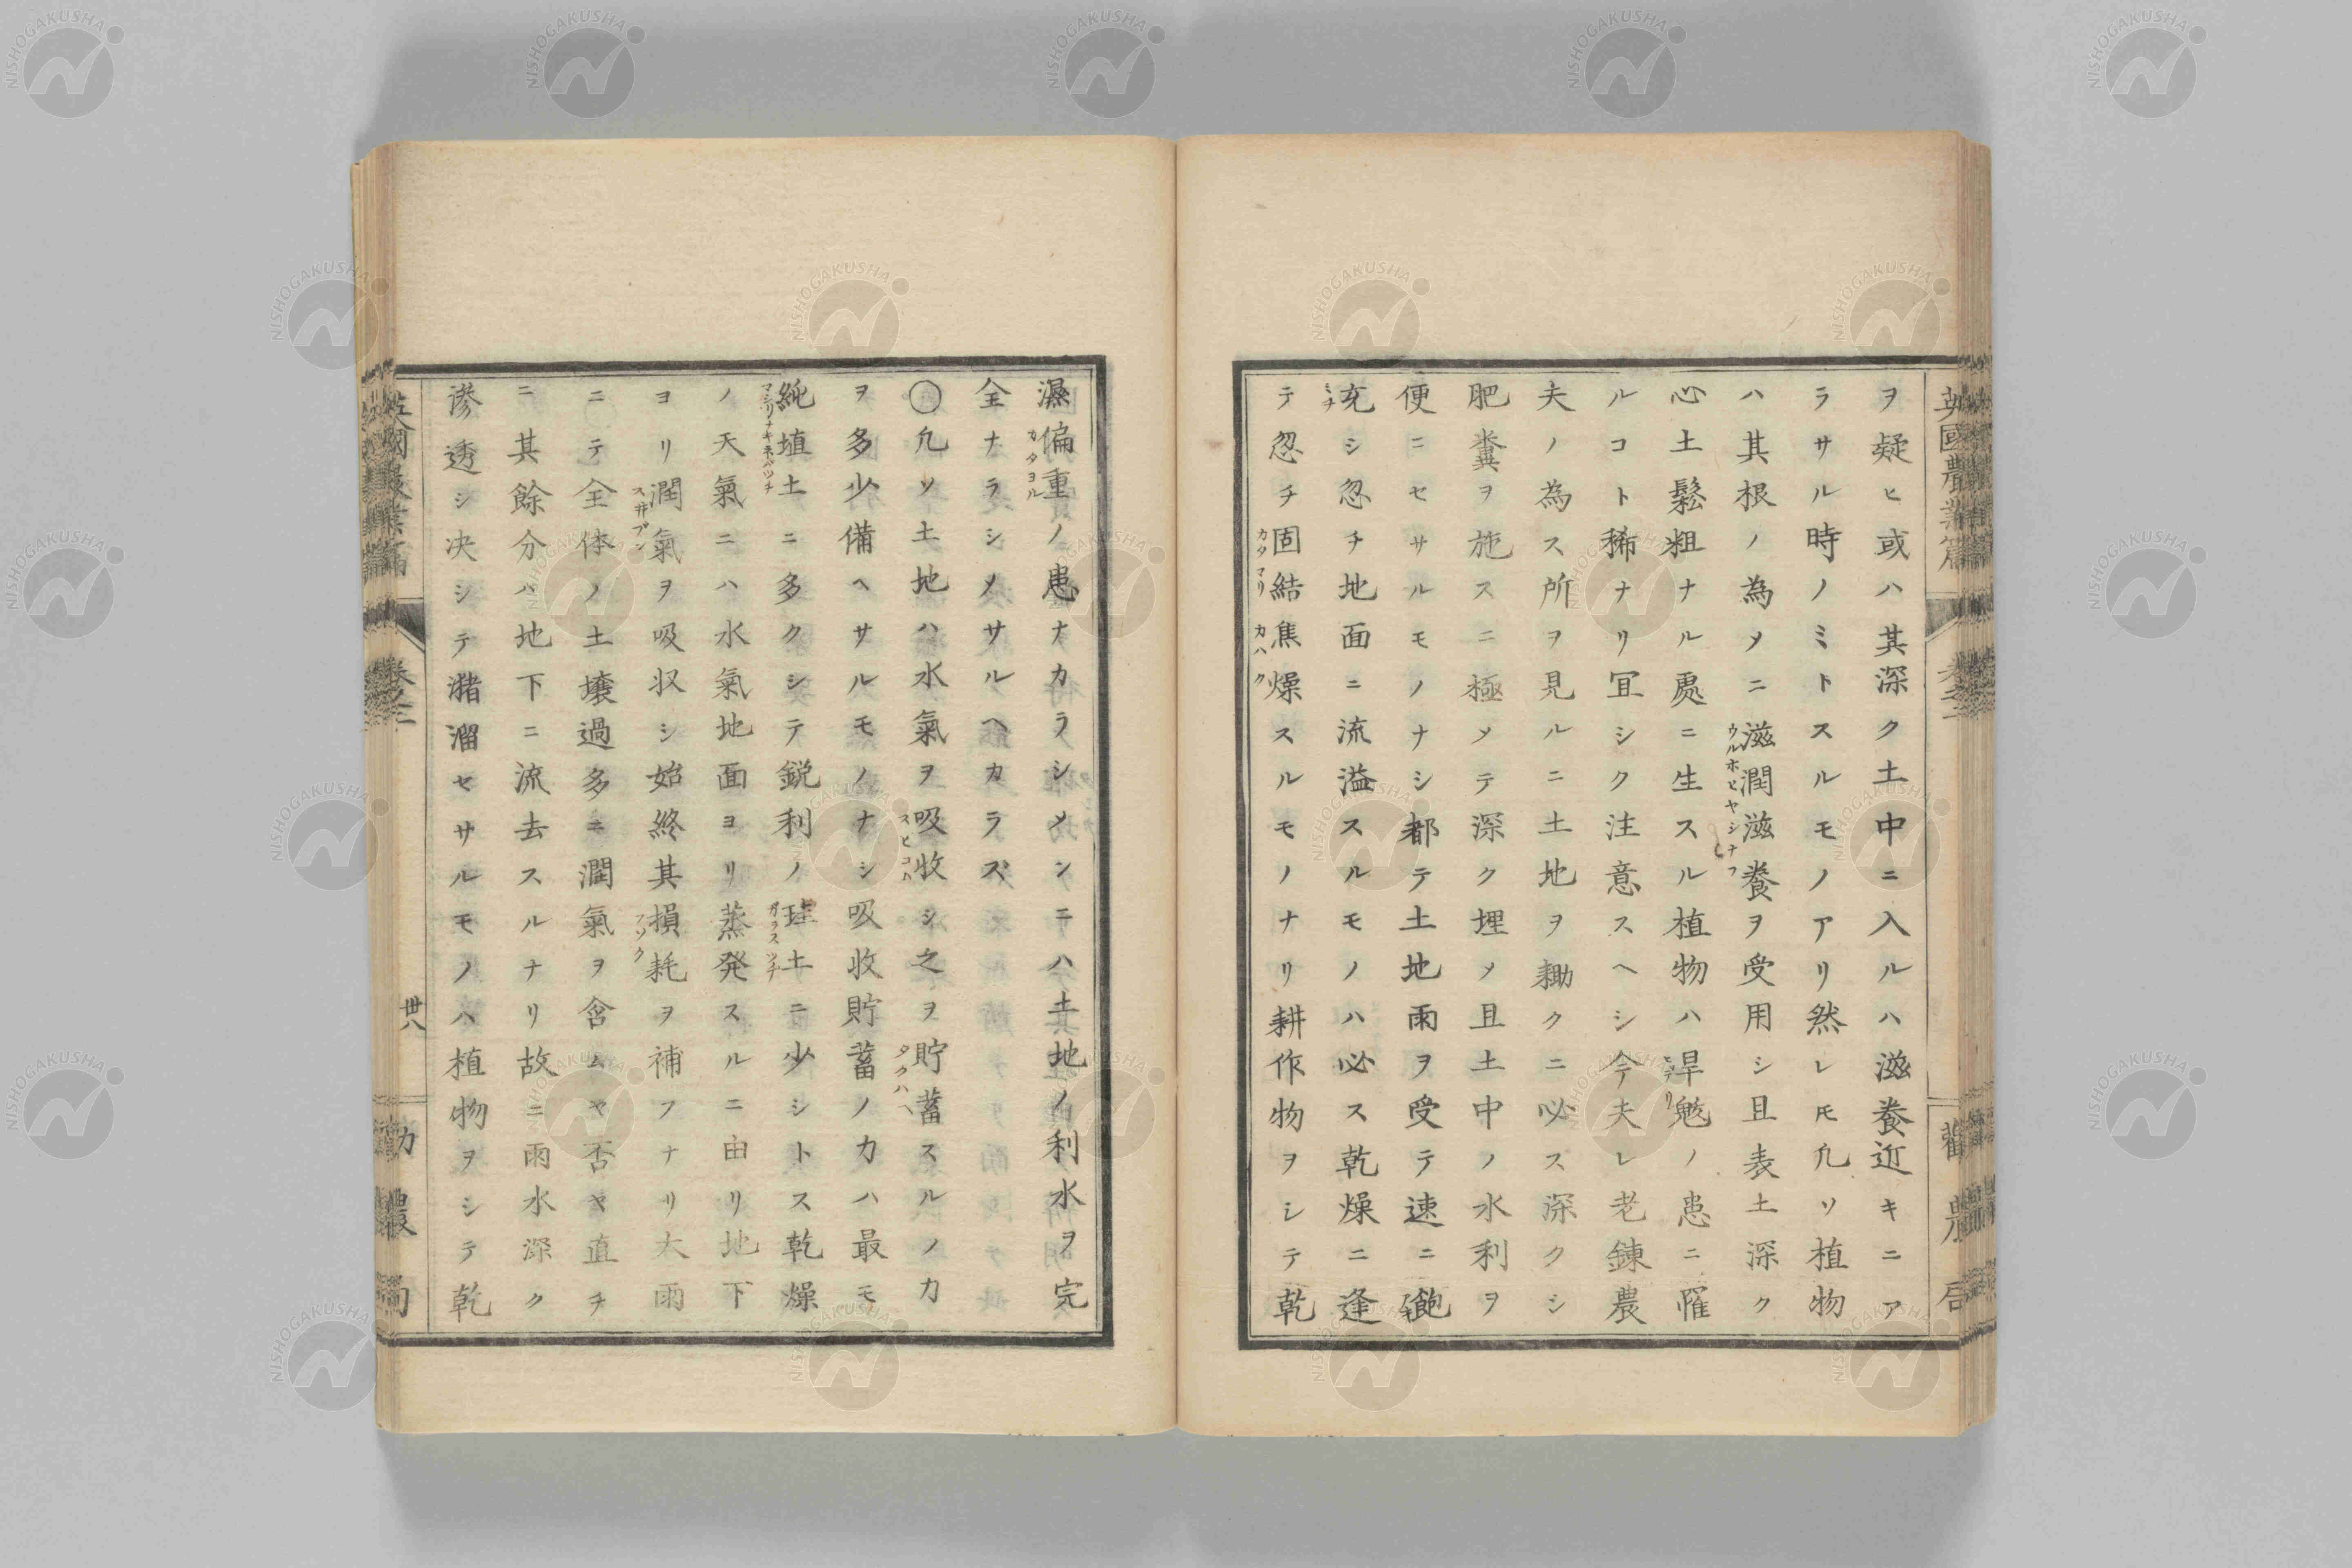 ヲ疑ヒ或ハ其深ク土中ニ入ルハ滋養近キニア
ラサル時ノミトスルモノアリ然レ𪜈凢ソ植物
ハ其根ノ為メニ滋潤滋養ヲ受用シ且表土深ク
ウルホヒヤシナフ
心土鬆粗ナル處ニ生スル植物ハ旱魃ノ患ニ罹
ヒデリ
ルコト稀ナリ冝シク注意スヘシ今夫レ老錬農
夫ノ為ス所ヲ見ルニ土地ヲ耡クニ必ス深クシ
肥糞ヲ施スニ極メテ深ク埋メ且土中ノ水利ヲ
便ニセサルモノナシ都テ土地雨ヲ受テ速ニ飽
充シ忽チ地面ニ流溢スルモノハ必ス乾燥ニ逢
ミチ
テ忽チ固結焦燥スルモノナリ耕作物ヲシテ乾
カタマリ カハク
濕偏重ノ患ナカラシメンニハ土地ノ利水ヲ完
カタヨル
全ナラシメサルヘカラス
〇凢ソ土地ハ水氣ヲ吸收シ之ヲ貯蓄スルノカ
スヒコム タクハヘ
ヲ多少備ヘサルモノナシ吸收貯蓄ノカハ最モ
純埴土ニ多クシテ鋭利ノ珪土ニ少シトス乾燥
マジリナキネバツチ ガラスツチ
ノ天氣ニハ水氣地面ヨリ蒸発スルニ由リ地下
ヨリ潤氣ヲ吸収シ始終其損耗ヲ補フナリ大雨
スヰブン フソク
ニテ全体ノ土壌過多ニ潤氣ヲ含ムヤ否ヤ直チ
ニ其餘分ハ地下ニ流去スルナリ故ニ雨水深ク
滲透シ决シテ瀦溜セサルモノハ植物ヲシテ乾
英國農業篇
卷之二
卅八
勸農局
NISHOGAKUSHA